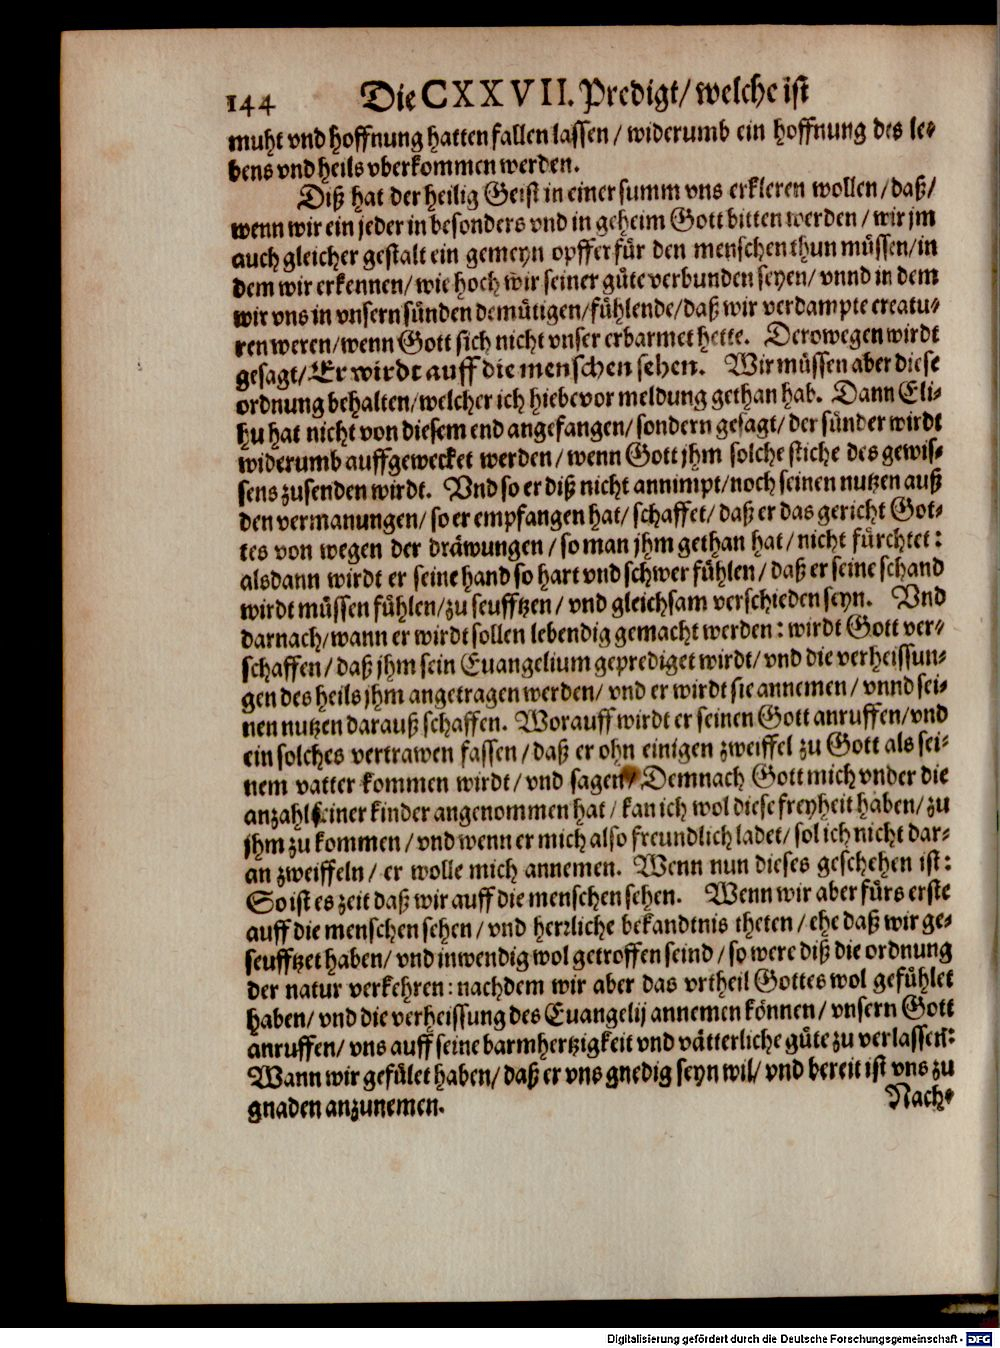 144 Die CXXVII. Predigt/ welche ist
muht vnd hoffnung hatten fallen lassen / widerumb ein hoffnung des le-
bens vnd heils vberkommen werden.
Diß hat der heilig Geist in einer summ vns erkleren wollen / daß/
wenn wir ein jeder in besonders vnd in geheim Gott bitten werden / wir jm
auch gleicher gestalt ein gemeyn opffer für den menschen thun müssen / in
dem wir erkennen / wie hoch wir seiner güte verbunden seyen / vnnd in dem
wir vns in vnsern sünden demütigen / fühlende / daß wir verdampte creatu-
ren weren / wenn Gott sich nicht vnser erbarmet hette. Derowegen wirdt
gesagt / Er wirdt auff die menschen sehen. Wir müssen aber diese
ordnung behalten / welcher ich hiebevor meldung gethan hab. Dann Eli-
hu hat nicht von diesem end angefangen / sondern gesagt / der sünder wirdt
widerumb auffgewecket werden / wenn Gott jhm solche stiche des gewis-
sens zusenden wirdt. Vnd so er diß nicht annimpt / noch seinen nutzen auß
den vermanungen / so er empfangen hat / schaffet / daß er das gericht Got-
tes von wegen der dräwungen / so man jhm gethan hat / nicht fürchtet:
alsdann wirdt er seine hand so hart vnd schwer fühlen / daß er seine schand
wirdt müssen fühlen / zu seufftzen / vnd gleichsam verschieden seyn. Vnd
darnach / wann er wirdt sollen lebendig gemacht werden: wirdt Gott ver-
schaffen / daß jhm sein Euangelium geprediget wirdt / vnd die verheissun-
gen des heils jhm angetragen werden / vnd er wirdt sie annemen / vnnd sei-
nen nutzen darauß schaffen. Worauff wirdt er seinen Gott anruffen / vnd
ein solches vertrawen fassen / daß er ohn einigen zweiffel zu Gott als sei-
nem vatter kommen wirdt / vnd sagen / Demnach Gott mich vnder die
anzahl seiner kinder angenommen hat / kan ich wol diese freyheit haben / zu
jhm zu kommen / vnd wenn er mich also freundlich ladet / sol ich nicht dar-
an zweiffeln / er wolle mich annemen. Wenn nun dieses geschehen ist:
So ist es zeit daß wir auff die menschen sehen. Wenn wir aber fürs erste
auff die menschen sehen / vnd herrliche bekandtnis theten / ehe daß wir ge-
seufftzet haben / vnd inwendig wol getroffen seind / so were diß die ordnung
der natur verkehren: nachdem wir aber das vrtheil Gottes wol gefühlet
haben / vnd die verheissung des Euangelij annemen können / vnsern Gott
anruffen / vns auff seine barmhertzigkeit vnd vätterliche güte zu verlassen:
Wann wir gefület haben / daß er vns gnedig seyn wil / vnd bereit ist vns zu
gnaden anzunemen.
Nach-
Digitalisierung gefördert durch die Deutsche Forschungsgemeinschaft - DFG